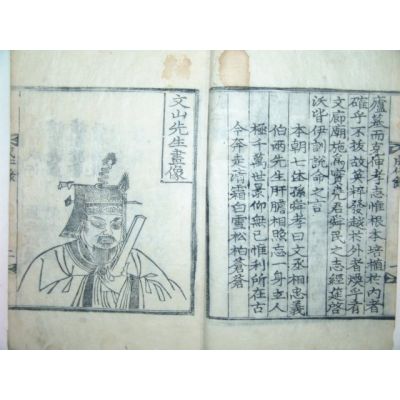 廬墓而克伸孝志惟根本培植於內者
確乎不拔故英華發越於外者煥乎有
文廊廟施爲實堯君舜民之志經筵啓
沃皆伊訓說命之言
本朝七休孫舜孝曰文丞相忠義
伯兩先生肝膽相照忘一身立人
極千萬世景仰無已惟利所在古
今奔走淸霜白雪松柏蒼蒼
文山先生畫像